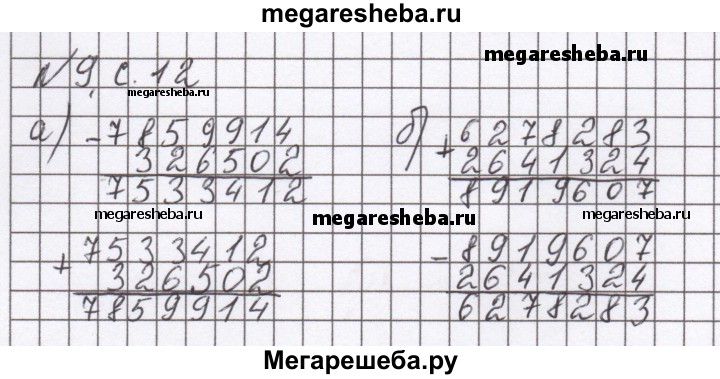 megaresheba.ru
megaresheba.ru
№9, с. 12
megaresheba.ru
а) - 7859914
326502
7533412
б) + 6278283
2641324
8919607
megaresheba.ru
megaresheba.ru
megaresheba.ru
+ 7533412
326502
7859914
- 8919607
2641324
6278283
Мегарешеба.ру